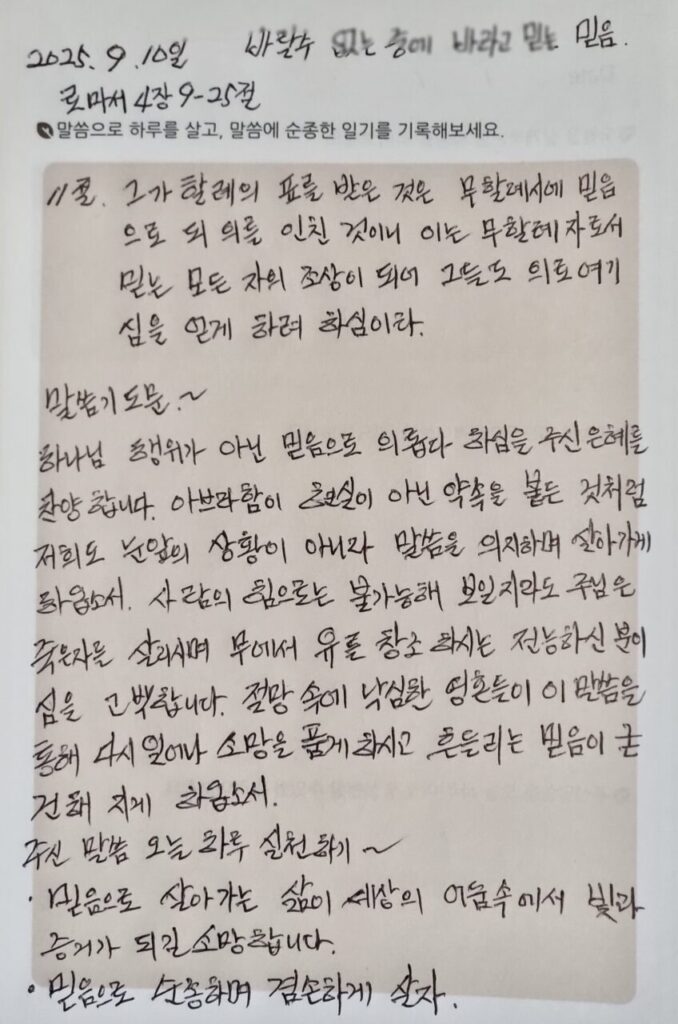 2025. 9. 10일 바랄수 없는 중에 바라고 믿는 믿음.
로마서 4장 9-25절
말씀으로 하루를 살고, 말씀에 순종한 일기를 기록해보세요.
11절. 그가 할례의 표를 받은 것은 무할례시에 믿음
으로 된 의를 인친 것이니 이는 무할례자로서
믿는 모든 자의 조상이 되어 그들도 의로 여기
심을 얻게 하려 하심이라.
말씀기도문.~
하나님 행위가 아닌 믿음으로 의롭다 하심을 주신 은혜를
찬양합니다. 아브라함이 현실이 아닌 약속을 붙든 것처럼
저희도 눈앞의 상황이 아니라 말씀을 의지하며 살아가게
하옵소서. 사람의 힘으로는 불가능해 보일지라도 주님은
죽은자를 살리시며 무에서 유를 창조 하시는 전능하신 분이
심을 고백합니다. 절망 속에 낙심한 영혼들이 이 말씀을
통해 다시 일어나 소망을 품게 하시고 흔들리는 믿음이 굳
건해 지게 하옵소서.
주신 말씀 오늘 하루 실천하기~
· 믿음으로 살아가는 삶이 세상의 어둠속에서 빛과
증거가 되길 소망합니다.
· 믿음으로 순종하며 겸손하게 살자.